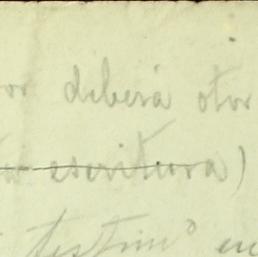 or deberá otor
escritura)
testimº en